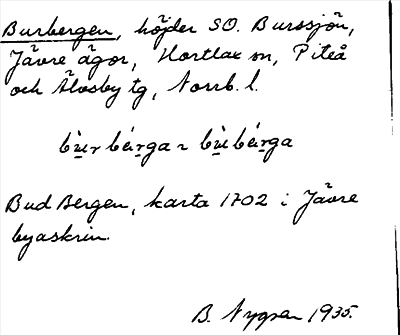 Burbergen, höjder SO. Burssjön,
Jävre ägor, Hortlax sn, Piteå
och Älvsby tg, Norrb. l.
bu̱r bärga ~ bu̱bärga
Bud Bergen, karta 1702 i Jävre
byaskrin.
B. Nygren 1935.